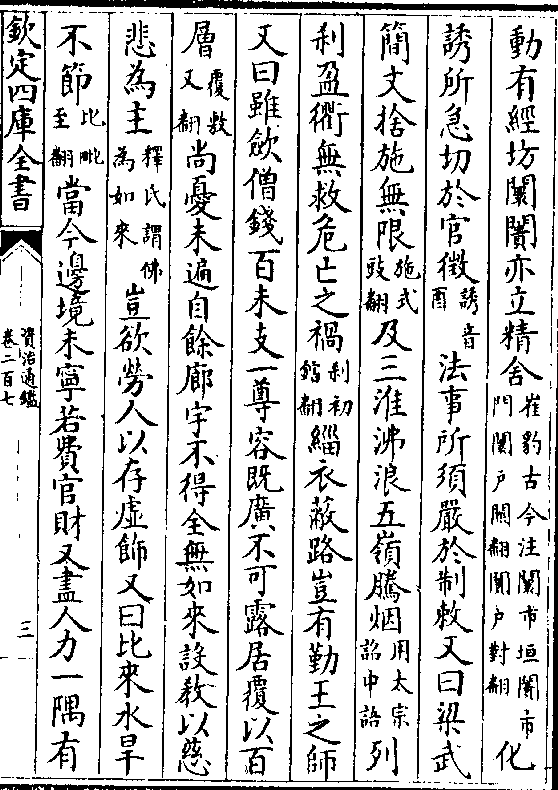 動有經坊闤闠亦立精舍崔豹古今注闤市垣闠市門闤戶關翻闠戶對翻化
誘所急切於官徵誘音酉法事所須嚴於制敕又曰梁武
簡文捨施無限施式豉翻及三淮沸浪五嶺騰烟用太宗詔中語列
刹盈衢無救危亡之禍刹初鎋翻緇衣蔽路豈有勤王之師
又曰雖斂僧錢百未支一尊容既廣不可露居覆以百
層覆敷又翻尚憂未遍自餘廊宇不得全無如來設教以慈
悲為主釋氏謂佛為如來豈欲勞人以存虛飾又曰比來水旱
不節比毗至翻當今邊境未寧若費官財又盡人力一隅有
欽定四庫全書
資治通鑑
卷二百七
三